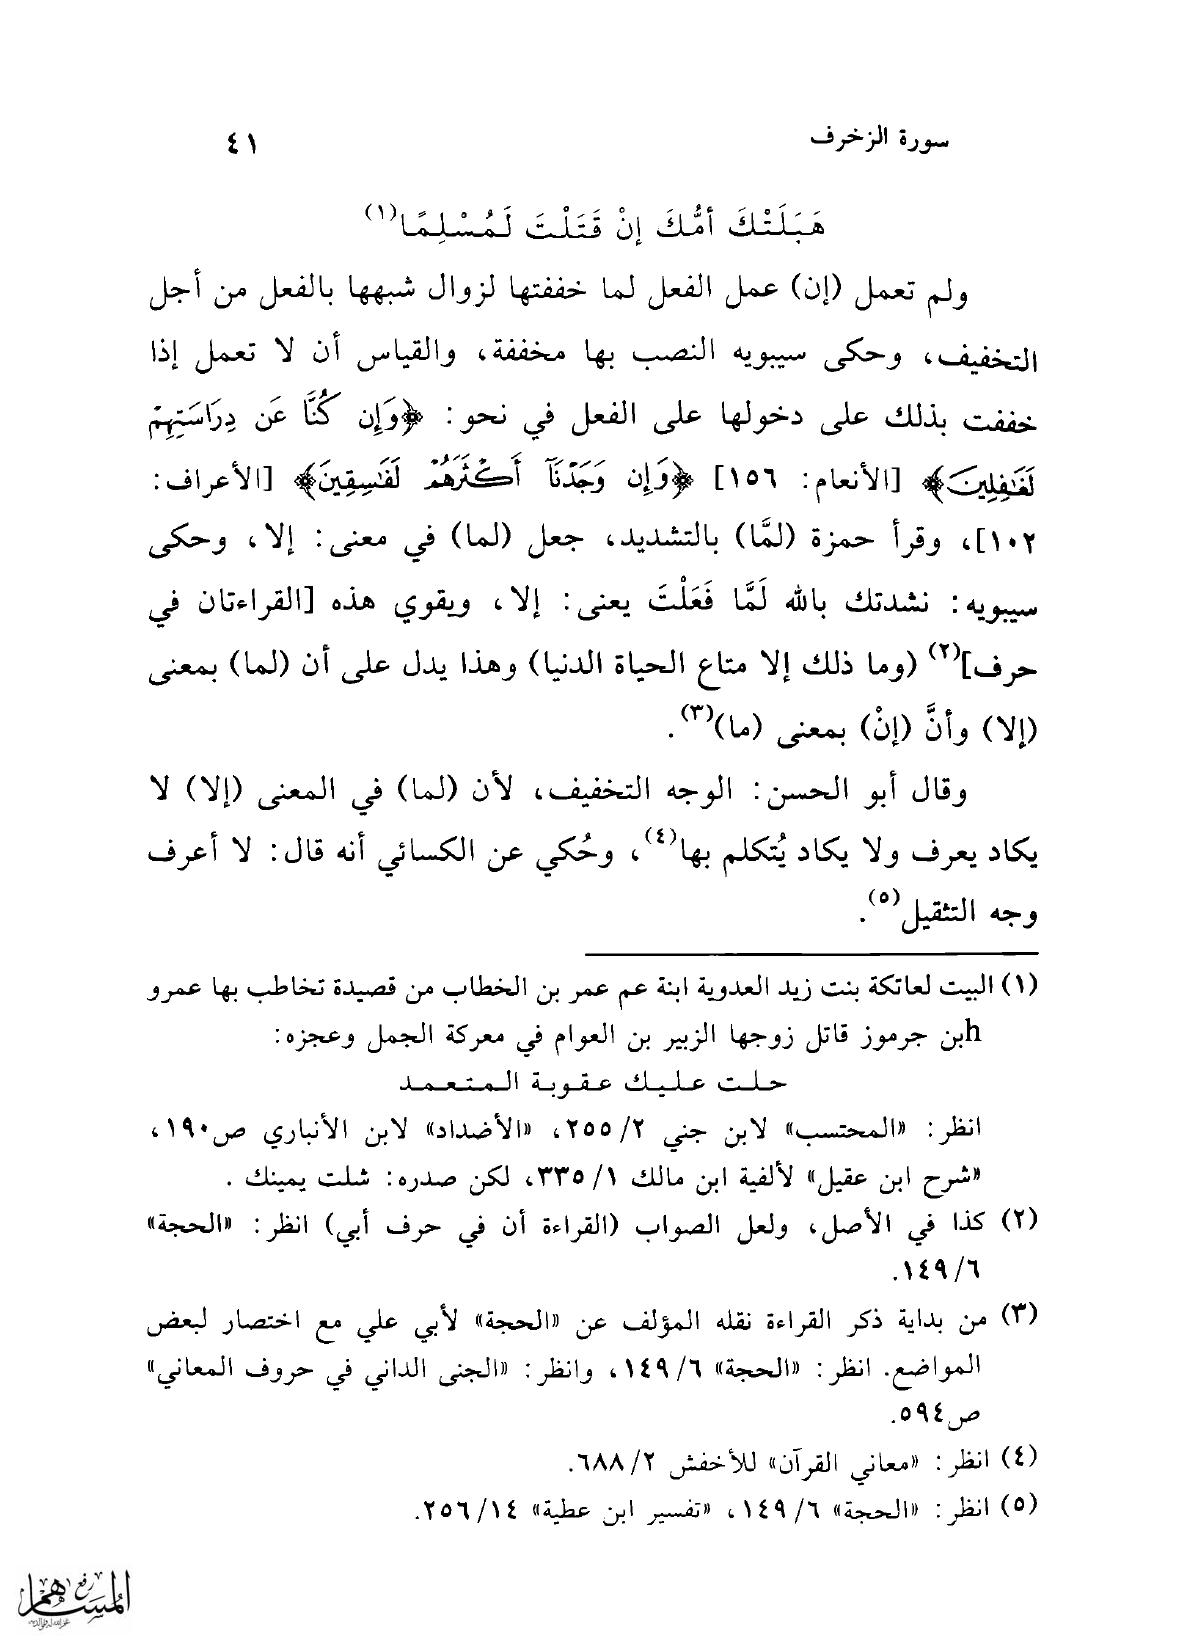 سورة الزخرف
٤١
هَبَلَتْكَ أمُّكَ إنْ قَتَلْتَ لَمُسْلِمًا(١)
ولم تعمل (إن) عمل الفعل لما خففتها لزوال شبهها بالفعل من أجل
التخفيف، وحكى سيبويه النصب بها مخففة، والقياس أن لا تعمل إذا
خففت بذلك على دخولها على الفعل في نحو: ﴿وَإِن كُنَّا عَن دِرَاسَتِهِمْ
لَغَٰفِلِينَ﴾ [الأنعام: ١٥٦] ﴿وَإِن وَجَدْنَآ أَكْثَرَهُمْ لَفَٰسِقِينَ﴾ [الأعراف:
١٠٢]، وقرأ حمزة (لمَّا) بالتشديد، جعل (لما) في معنى: إلا، وحكى
سيبويه: نشدتك بالله لَمَّا فَعَلْتَ يعنى: إلا، ويقوي هذه [القراءتان في
حرف](٢) (وما ذلك إلا متاع الحياة الدنيا) وهذا يدل على أن (لما) بمعنى
(إلا) وأنَّ (إنْ) بمعنى (ما)(٣).
وقال أبو الحسن: الوجه التخفيف، لأن (لما) في المعنى (إلا) لا
يكاد يعرف ولا يكاد يُتكلم بها(٤)، وحُكي عن الكسائي أنه قال: لا أعرف
وجه التثقيل(٥).
(١) البيت لعاتكة بنت زيد العدوية ابنة عم عمر بن الخطاب من قصيدة تخاطب بها عمرو
hبن جرموز قاتل زوجها الزبير بن العوام في معركة الجمل وعجزه:
حلت عليك عقوبة المتعمد
انظر: «المحتسب» لابن جني ٢/ ٢٥٥، «الأضداد» لابن الأنباري ص١٩٠،
«شرح ابن عقيل» لألفية ابن مالك ١/ ٣٣٥، لكن صدره: شلت يمينك .
(٢) كذا في الأصل، ولعل الصواب (القراءة أن في حرف أبي) انظر: «الحجة»
٦/ ١٤٩.
(٣) من بداية ذكر القراءة نقله المؤلف عن «الحجة» لأبي علي مع اختصار لبعض
المواضع. انظر: «الحجة» ٦/ ١٤٩، وانظر: «الجنى الداني في حروف المعاني»
ص٥٩٤.
(٤) انظر: «معاني القرآن» للأخفش ٢/ ٦٨٨.
(٥) انظر: «الحجة» ٦/ ١٤٩، «تفسير ابن عطية» ١٤/ ٢٥٦.
رفع
المساهم